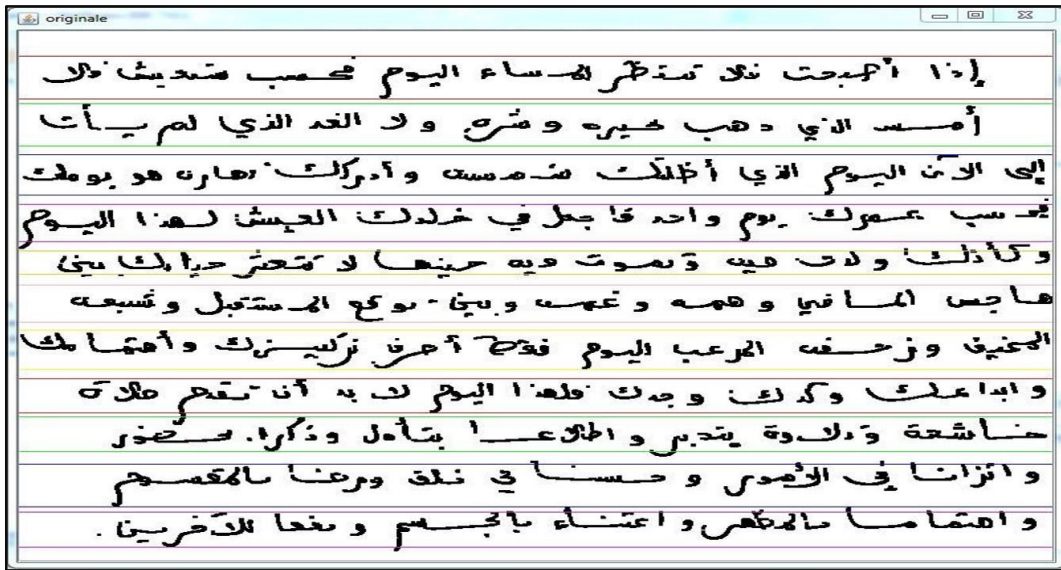 originale
إذا أصبحت فلا تنتظر المساء اليوم فحسب ستعيش فلا
أمس الذي ذهب بخيره وشره ولا الغد الذي لم يأت
إلى الآن اليوم الذي أظلتك شمسه وأدركك نهاره هو يومك
فحسب عمرك يوم واحد فاجعل في خلدك العيش لهذا اليوم
وكأنك ولدت فيه وتموت فيه حينها لا تتعثر حياتك بين
هاجس الماضي وهمه وغمه وبين توقع المستقبل وشبحه
المخيف وزحفه المرعب اليوم فقط أصرف تركيزك وأهتمامك
وابداعك وكدك وجدك فلهذا اليوم لابد أن تقدم صلاة
خاشعة وتلاوة بتدبر واطلاعا بتأمل وذكرا بحضور
واتزانا في الأمور وحسنا في خلق ورضا بالمقسوم
واهتماما بالمظهر واعتناء بالجسم ونفعا للآخرين.